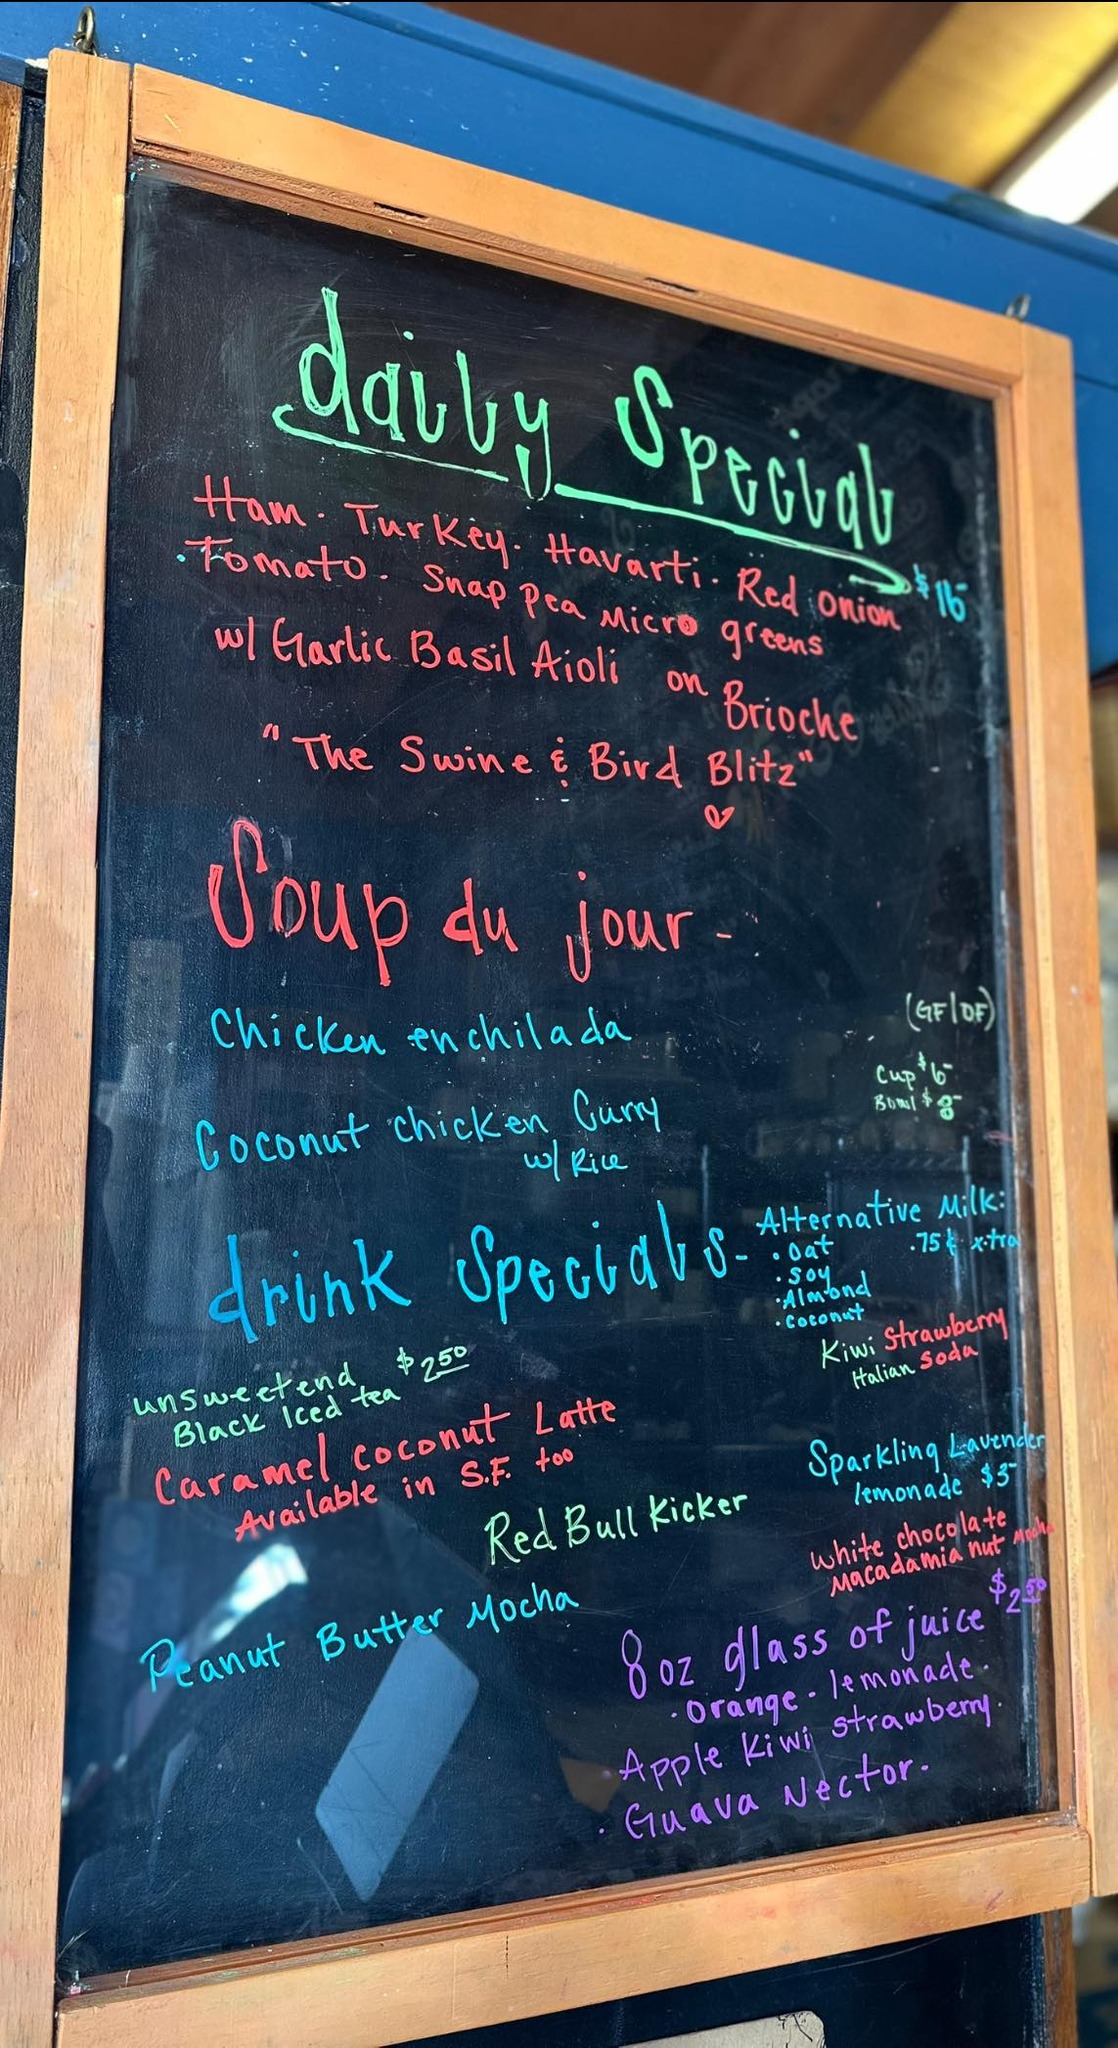 daily Special
Ham. Turkey. Havarti. Red onion $16-
. Tomato. Snap pea Micro greens
w/ Garlic Basil Aioli on Brioche
"The Swine & Bird Blitz"
Soup du jour -
Chicken enchilada (GF/DF)
Cup $6-
Bowl $8-
Coconut chicken Curry
w/ Rice
drink Specials -
Alternative Milk:
. oat .75¢ x-tra
. soy
. Almond
. coconut
Kiwi Strawberry
Italian Soda
unsweetend $2.50
Black Iced tea
Caramel coconut Latte
Available in S.F. too
Sparkling Lavender
lemonade $3-
Red Bull Kicker
white chocolate
Macadamia nut Mocha
Peanut Butter Mocha
8 oz glass of juice $2.50
. orange - lemonade.
. Apple Kiwi strawberry.
. Guava Nector.